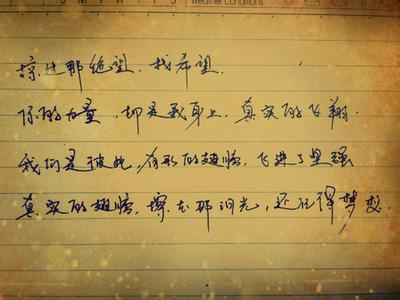 Weather conditions
那绝望,找希望.
你的力量,却是我身上,真实的飞翔.
我们是彼此,有形的翅膀,飞进了坚强
真实的翅膀,那泪光,还记得梦